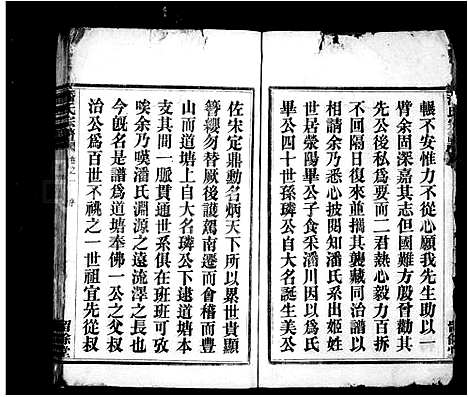 輾不安惟力不從心願我先生助以一
臂余固深嘉其志但國難方殷曾勸其
先公後私爲要而二君熱心毅力百拆
不回隔日復來並攜其襲藏同治譜以
相請余乃悉心披閱知潘氏系出姬姓
世居滎陽畢公子食采潘川因以爲氏
畢公四十世孫璘公自大名誕生美公
佐宋定鼎勳名炳天下所以累世貴顯
簪纓勿替厥後護駕南遷而會稽而豐
山而道塘上自大名璘公下逮道塘本
支其間一脈貫通世系俱在班班可攷
唉余乃嘆潘氏淵源之遠流澤之長也
今旣名是譜爲道塘奉佛一公之父叔
治公爲百世不祧之一世祖宜先從叔
潘氏宗譜
卷之一 序